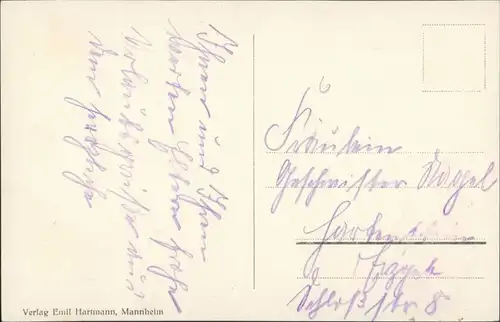 Ihnen und Ihren
werten Eltern frohe
Urlaubsgrüße aus
dem
Fräulein
Geschwister Nagel
Schloßstr 8
Verlag Emil Hartmann, Mannheim